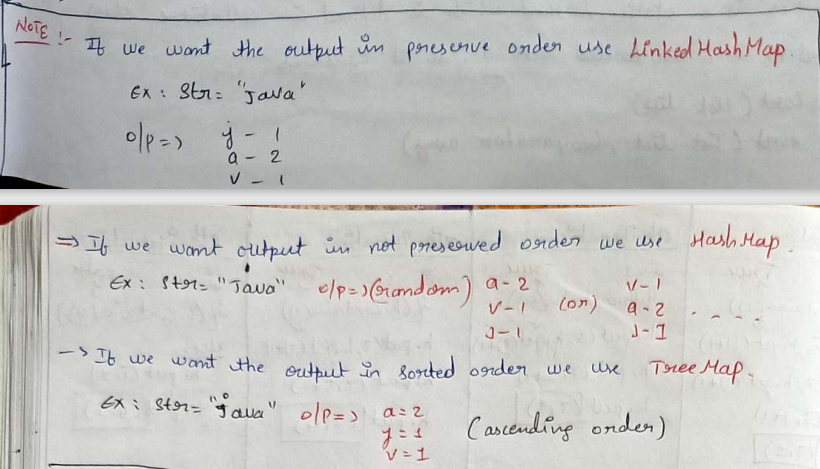 NOTE :- If we want the output in preserve order use LinkedHashMap.
Ex : Str = "Java"
o/p => j - 1
a - 2
v - 1
=> If we want output in not preserved order we use HashMap.
Ex : Str = "Java" o/p => (random) a - 2 v - 1
v - 1 (or) a - 2 . - - -
J - 1 J - 1
-> If we want the output in sorted order we use TreeMap.
Ex : Str = "java" o/p => a = 2
y = 1 (ascending order)
v = 1